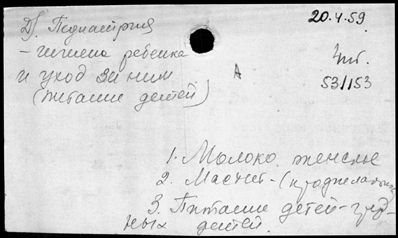 Дб. Педиатрия
20.4.59
- гигиена ребенка
и уход за ним
(питание детей)
А
Чит.
53/153
1. Молоко женское
2. Мастит - (
3. Питание детей - груд-
ных детей